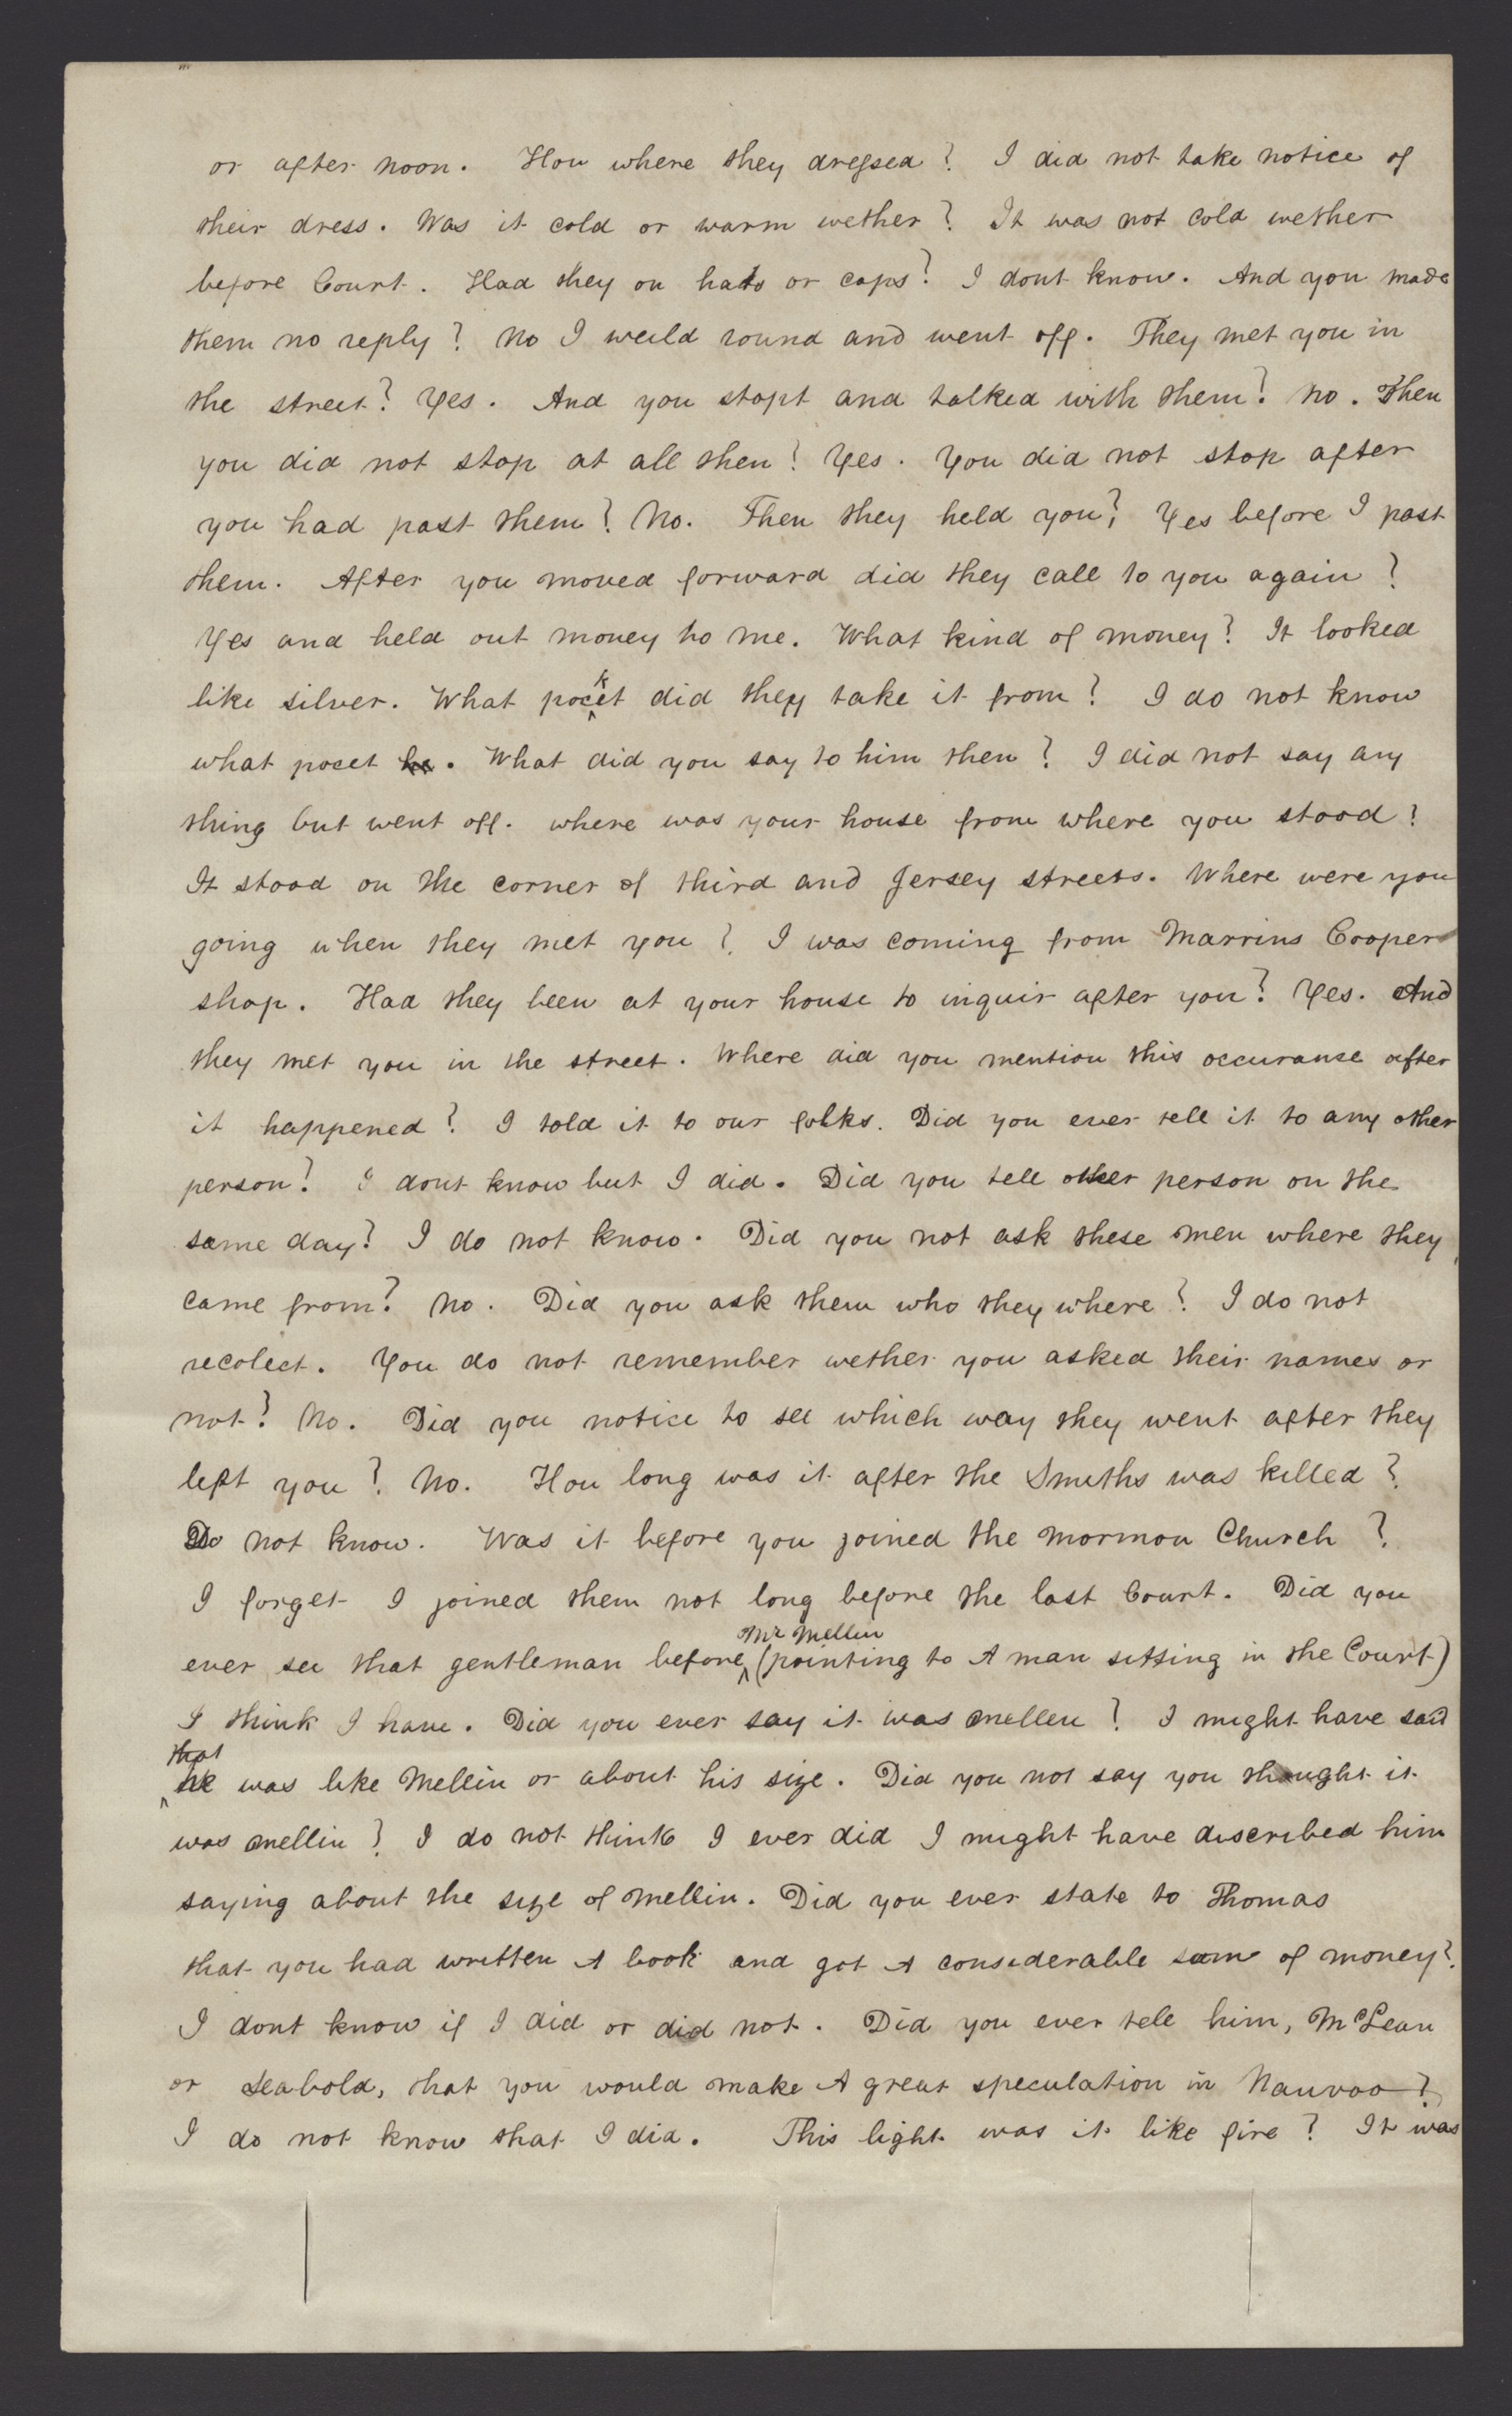 or after noon. How where they dressed? I did not take notice of
their dress. Was it cold or warm wether? It was not cold wether
before Court. Had they on hats or caps? I dont know. And you made
them no reply? No I weeld round and went off. They met you in
the street? Yes. And you stopt and talked with them? No. Then
you did not stop at all then? Yes. You did not stop after
you had past them? No. Then they held you? Yes before I past
them. After you moved forward did they call to you again?
Yes and held out money to me. What kind of money? It looked
like silver. What pocket did they take it from? I do not know
what pocet he. What did you say to him then? I did not say any
thing but went off. where was your house from where you stood?
It stood on the corner of third and Jersey streets. Where were you
going when they met you? I was coming from Marrins Cooper
shop. Had they been at your house to inquir after you? Yes. And
they met you in the street. Where did you mention this occuranse after
it happened? I told it to our folks. Did you ever tell it to any other
person? I dont know but I did. Did you tell other person on the
same day? I do not know. Did you not ask these men where they
came from? No. Did you ask them who they where? I do not
recolect. You do not remember wether you asked their names or
not? No. Did you notice to see which way they went after they
left you? No. How long was it after the Smiths was killed?
Do not know. Was it before you joined the Mormon Church?
I forget I joined them not long before the last Court. Did you
ever see that gentleman before Mr Mellin (pointing to A man sitting in the Court)
I think I have. Did you ever say it was Mellen? I might have said
that he was like Mellin or about his size. Did you not say you thought it
was Mellin? I do not think I ever did I might have discribed him
saying about the size of Mellin. Did you ever state to Thomas
that you had written A book and got A considerable sum of money?
I dont know if I did or did not. Did you ever tell him, McLean
or Seabold, that you would make A great speculation in Nauvoo?
I do not know that I did. This light was it like fire? It was